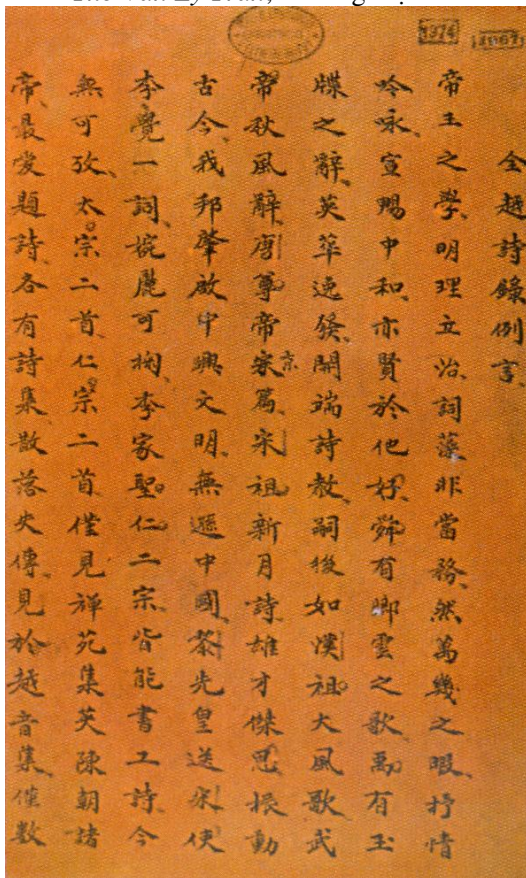 全越詩錄例言
帝王之學明理立治詞藻非當務然萬幾之暇抒情
吟咏宣賜中和亦賢於他好舜有卿雲之歌禹有玉
牒之辭英華逸發開端詩教嗣後如漢祖大風歌武
帝秋風辭唐帝京篇宋祖新月詩雄才傑思振動
古今我邦肇啟中興文明無遜中國黎先皇送宋使
李覺一詞婉麗可掬李家聖仁二宗皆能書工詩今
無可攷太宗二首仁宗二首僅見禪苑集英陳朝諸
帝最愛題詩各有詩集散落史傳見於越音集僅數